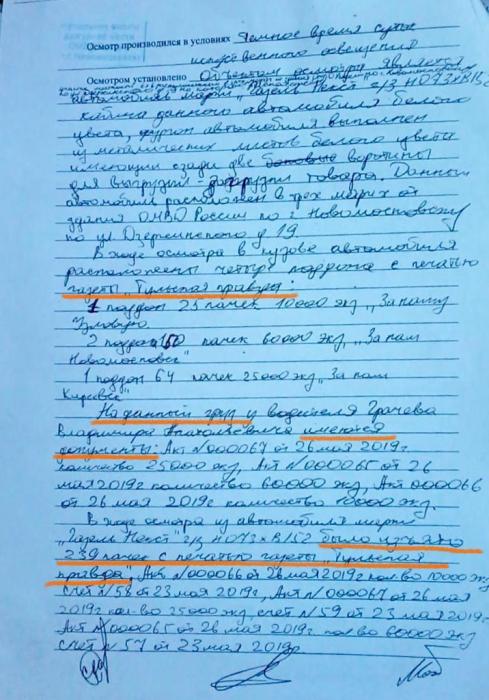 Осмотр производился в условиях темное время суток
искусственного освещения
Осмотром установлено Объектом осмотра является
автомобиль марки "Газель Некст" г/з Н073ХВ152
кабина данного автомобиля белого
цвета, фургон автомобиля выполнен
из металических листов белого цвета
имеющий сзади две боковые
для выгрузки товара. Данный
автомобиль расположен в трех метрах от
здания ОМВД России по г. Новомосковску
по ул. Дзержинского д. 19
В ходе осмотра в кузове автомобиля
расположены четыре поддона с печатью
газеты "Тульская правда":
1 поддон 25 пачек 10000 экз "За нашу
Узловую
2 поддона 150 пачек 60000 экз, "За наш
Новомосковск"
1 поддон 64 пачек 25000 экз "За наш
Киреевск"
На данный груз у водителя Грачева
Владимира Анатольевича имеются
документы: Акт №000067 от 26 мая 2019г
количество 25000 экз, Акт №000065 от 26
мая 2019г количество 60000 экз, Акт №000066
от 26 мая 2019г количество 10000 экз.
В ходе осмотра из автомобиля марки
"Газель Некст" г/з Н073ХВ152 было изъято
239 пачек с печатью газеты "Тульская
правда", Акт №000066 от 26 мая 2019г кол-во 10000 экз
счет №58 от 23 мая 2019г, Акт №000067 от 26 мая
2019г кол-во 25000 экз, счет №59 от 23 мая 2019г
Акт №000065 от 26 мая 2019г кол-во 60000 экз
счет №57 от 23 мая 2019г